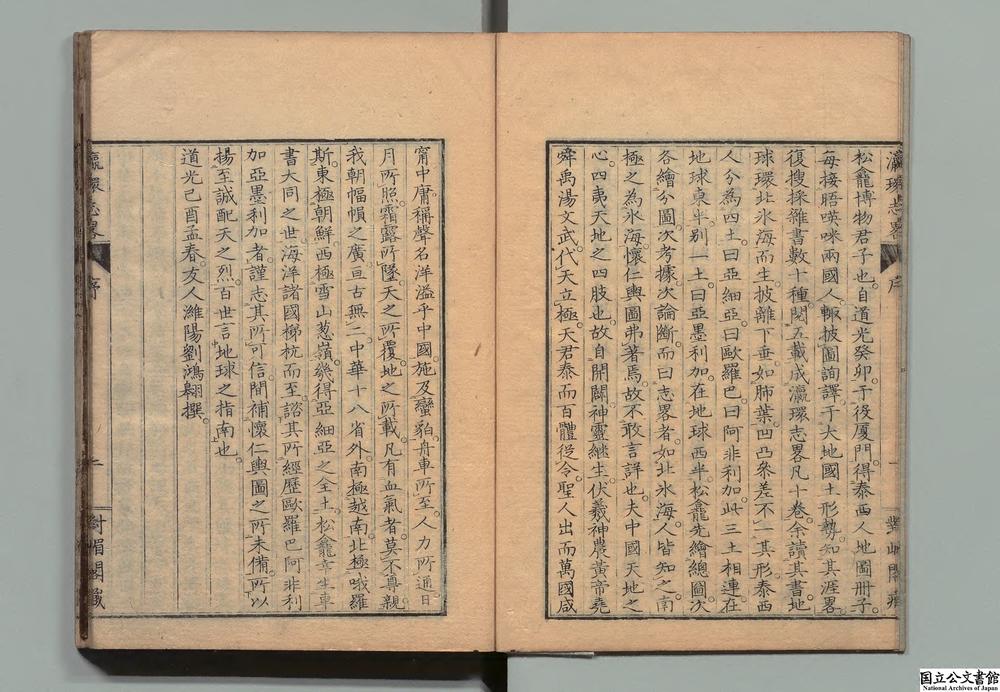 瀛環志畧 序
松龕博物君子也自道光癸卯于役厦門得泰西人地圖冊子
每接晤𠸄咪兩國人輒披圖詢譯于大地國土形勢知其涯畧
復搜採雜書數十種閱五載成瀛環志畧凡十卷余讀其書地
球環北氷海而生披離下垂如肺葉凹凸參差不一其形泰西
人分為四土曰亞細亞曰歐羅巴曰阿非利加此三土相連在
地球東半別一土曰亞墨利加在地球西半松龕先繪總圖次
各繪分圖次考據次論斷而曰志畧者如北氷海人皆知之南
極之為氷海懷仁輿圖弗著焉故不敢言詳也夫中國天地之
心四夷天地之四肢也故自開闢神靈継生伏羲神農黃帝堯
舜禹湯文武代天立極天君泰而百體從令聖人出而萬國咸
甯中庸稱聲名洋溢乎中國施及蠻貊舟車所至人力所通日
月所照霜露所墜天之所覆地之所載凡有血氣者莫不尊親
我朝幅幀之廣亘古無二中華十八省外南極越南北極哦羅
斯東極朝鮮西極雪山葱嶺幾得亞細亞之全土松龕幸生車
書大同之世海洋諸國梯杭而至諮其所經歷歐羅巴阿非利
加亞墨利加者謹志其所可信間補懷仁輿圖之所未備所以
揚至誠配天之烈百世言地球之指南也
道光己酉孟春友人濰陽劉鴻翱撰
瀛環志畧 序
二
對嵋閣藏
国立公文書館
National Archives of Japan